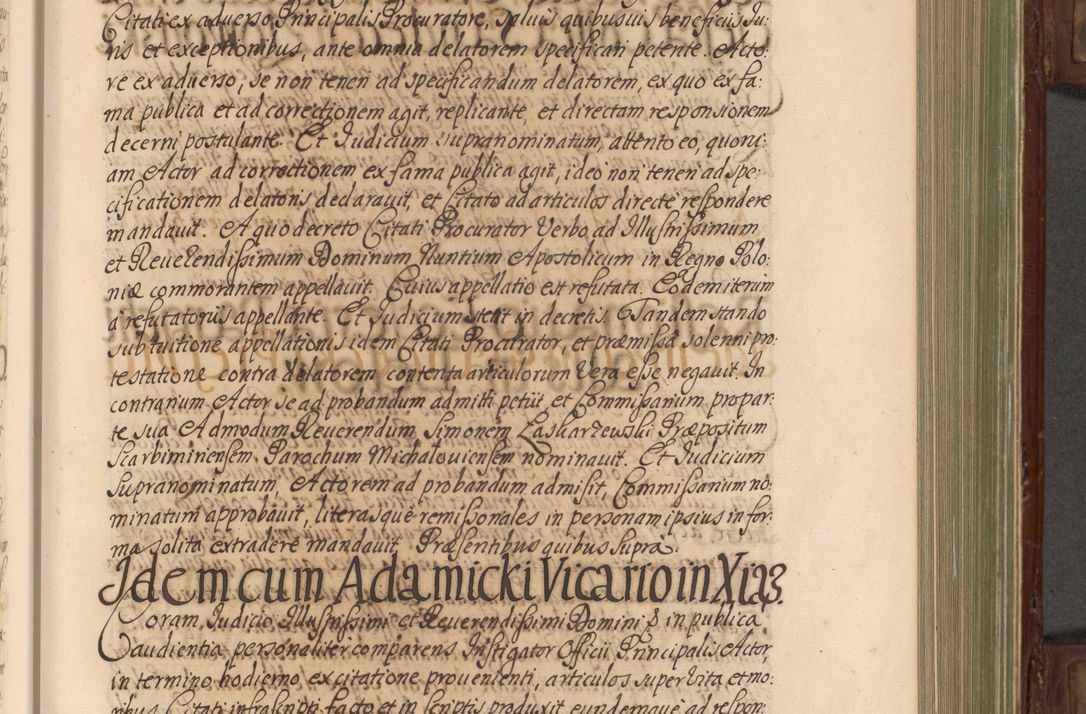 Citati ex adverso Principalis Procuratore, salvis quibusvis beneficijs Ju:
ris et exceptionibus, ante omnia delatorem specificari petente. Acto:
re ex adverso, se non teneri ad specificandum delatorem, ex quo ex fa:
ma publica et ad correctionem agit, replicante, et directam responsionem
decerni postulante. Et Judicium supranominatum, attento eo, quoni:
am Actor ad correctionem ex fama publica agit, ideo non teneri ad spe:
cificationem delatoris declaravit, et Citato ad articulos directe respondere
mandavit. A quo decreto Citati Procurator Verbo ad Illustrissimum
et Reverendissimum Dominum Nuntium Apostolicum in Regno Polo:
niæ commorantem appellavit. Cuius appellatio est refutata. Eodem iterum
à refutatoriis appellante. Et Judicium stetit in decretis. Tandem stando
sub tuitione appellationis idem Citati Procurator, et præmissâ solenni pro:
testatione contra delatorem contenta articulorum Vera esse negavit. In
contrarium Actor se ad probandum admitti petiit, et Commissarium pro par:
te sua Admodum Reverendum Simonem Laskarzewski Præpositum
Scarbimiriensem Parochum Michaloviensem nominavit. Et Judicium
supranominatum, Actorem ad probandum admisit, Commissarium no:
minatum approbavit, literasque remissionales in personam ipsius in for:
ma solita extradere mandavit. Præsentibus quibus supra.
Idem cum Adamicki Vicario in Xiąż.
Coram Judicio Illustrissimi et Reverendissimi Domini & in publica
audientia personaliter comparens Instigator Officii Principalis Actor,
in termino hodierno, ex citatione provenienti, articulos super Vita et mo:
ribus Citati infrascripti facto et in scriptis produxit eundemque ad respon: